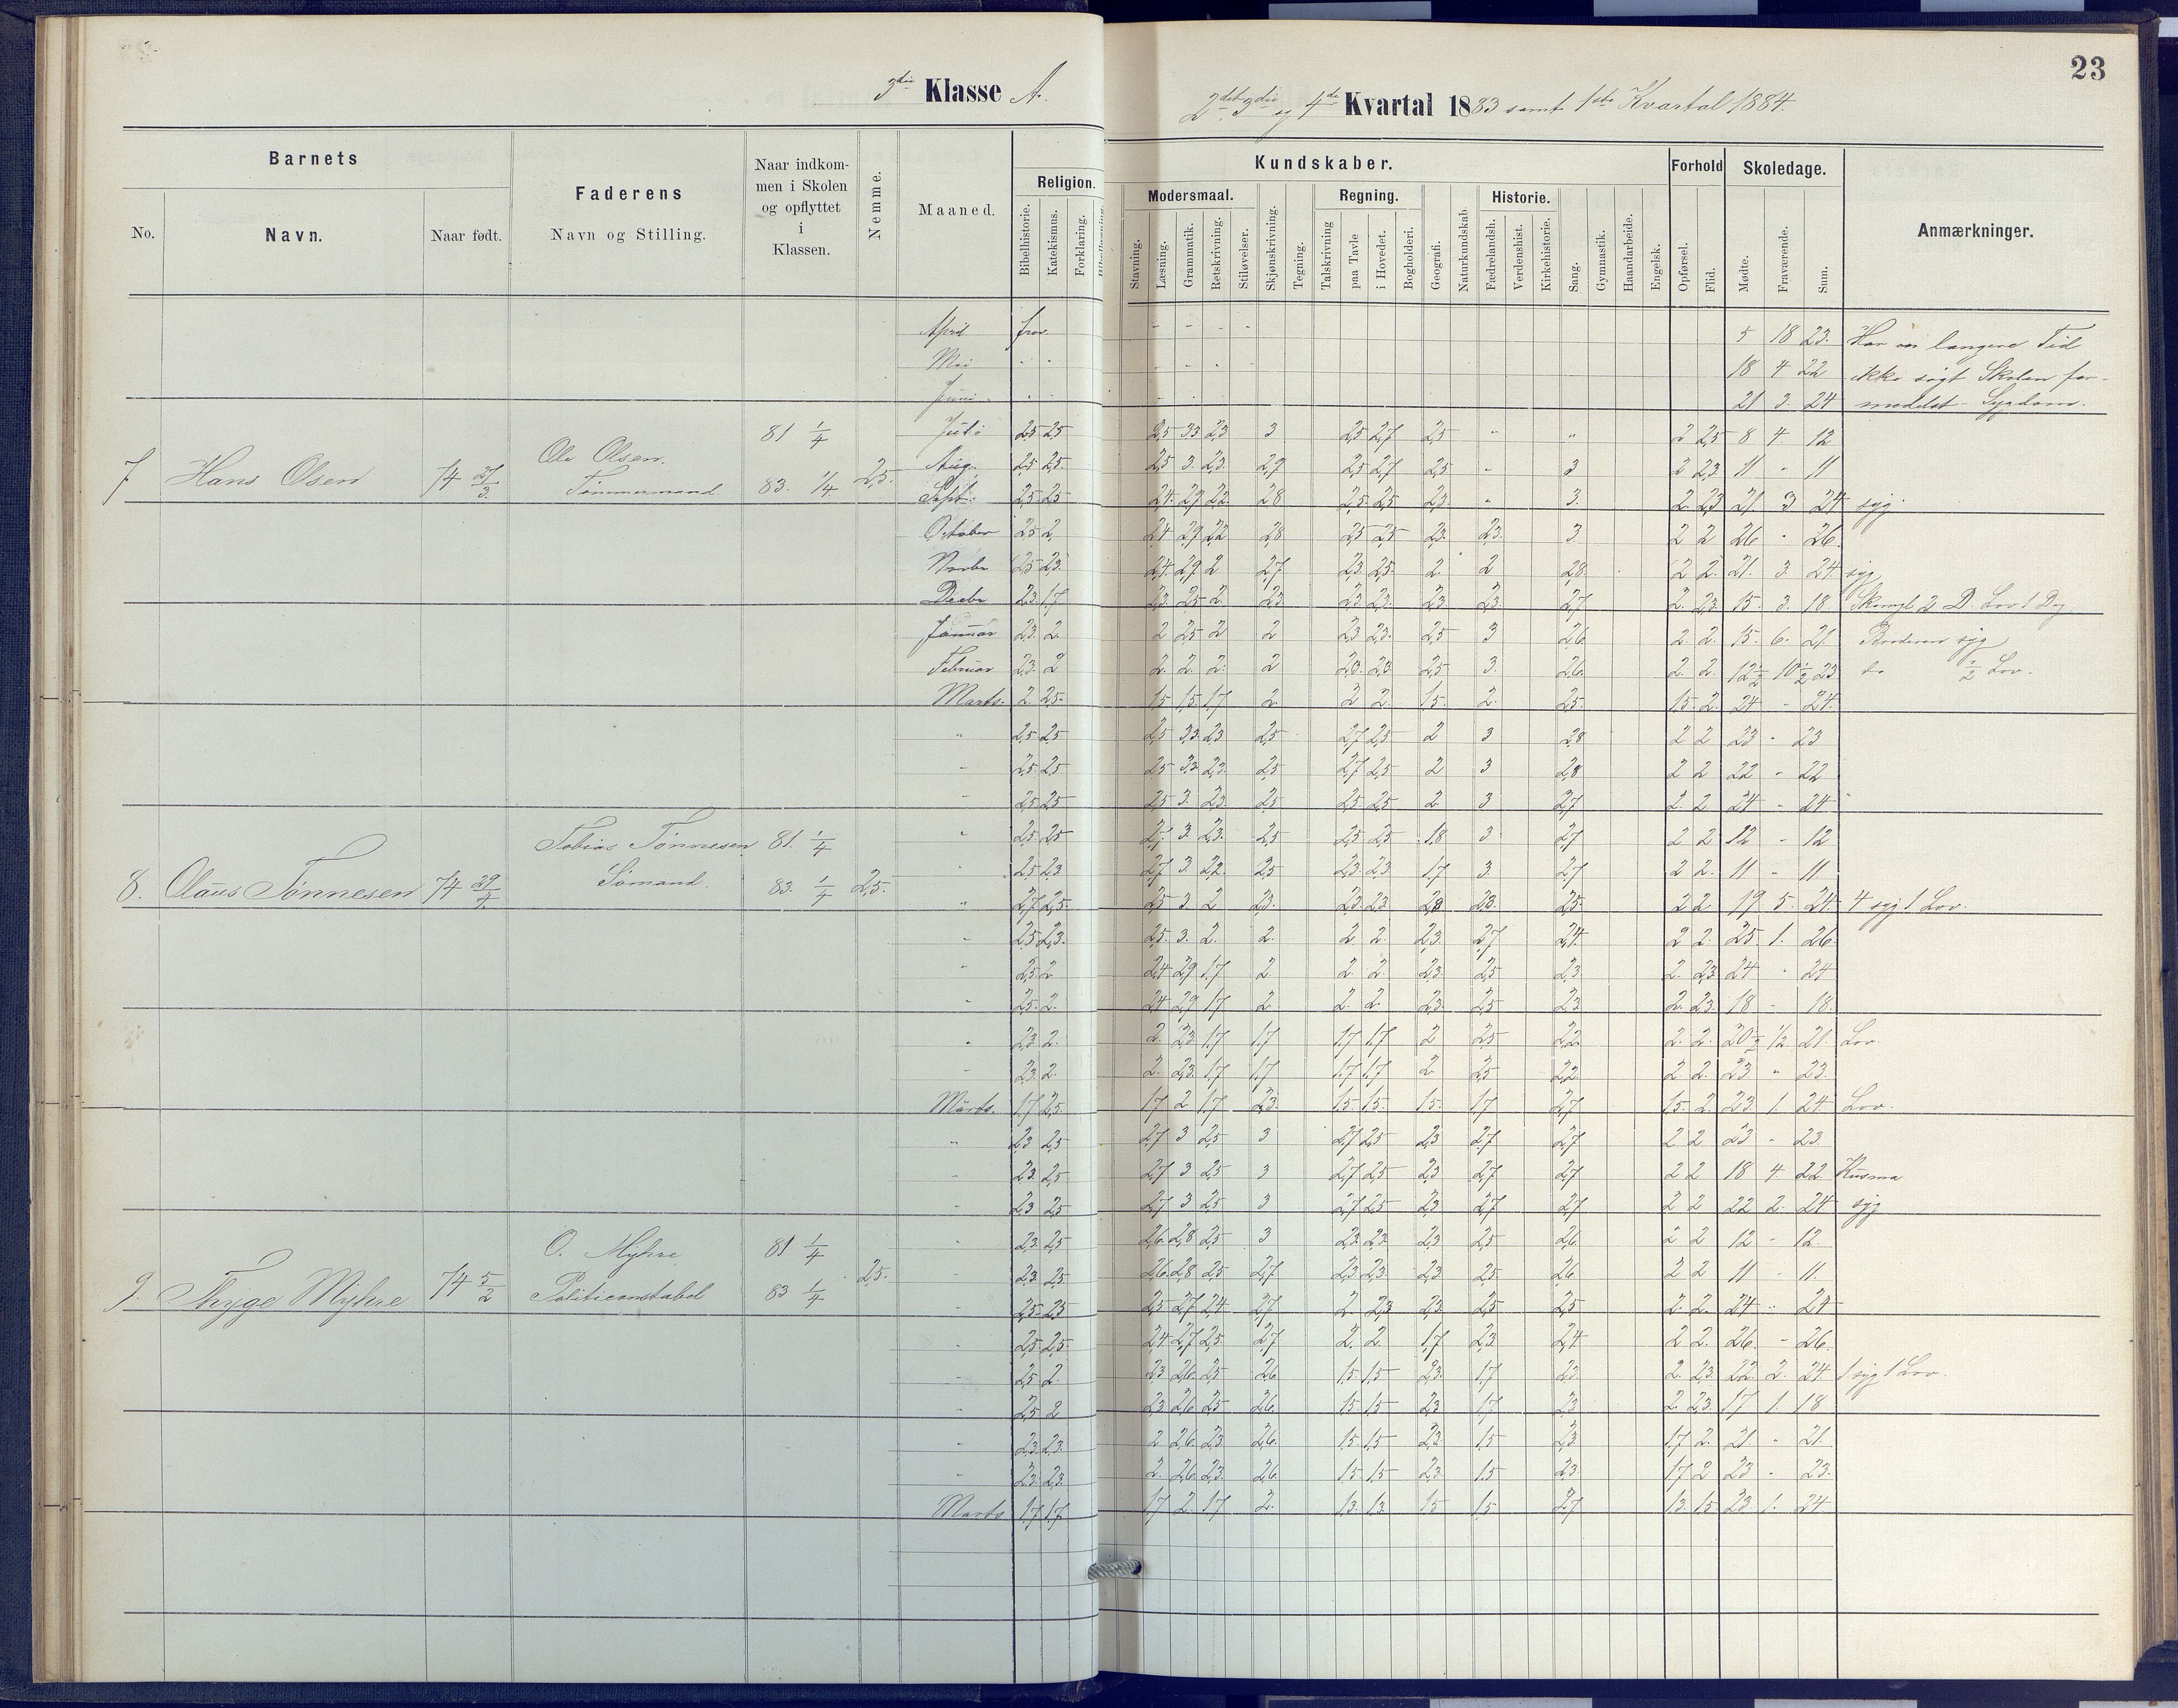 23
3die Klasse A.
2det 3die og 4de Kvartal 1883 samt 1ste Kvartal 1884.
Barnets
Faderens
Naar indkommen i Skolen og opflyttet i Klassen.
Nemme.
Maaned.
Kundskaber.
Forhold
Skoledage.
Anmærkninger.
No. Navn. Naar født. Navn og Stilling.
Religion. Modersmaal. Regning. Historie.
Bibelhistorie. Katekismus. Forklaring. Stavning. Læsning. Grammatik. Retskrivning. Stiløvelser. Skjønskrivning. Tegning. Talskrivning paa Tavle i Hovedet. Bogholderi. Geografi. Naturkundskab. Fædrelandsh. Verdenshist. Kirkehistorie. Sang. Gymnastik. Haandarbeide. Engelsk. Opførsel. Flid. Mødte. Fraværende. Sum.
April frav. - - - - 5 18 23. Har en længere Tid
Mai 18 4 22 ikke søgt Skolen for-
Juni 21 3. 24 medelst Sygdom.
81 1/4 Juli 2,5 2,5 2,5 3,3 2,3 3 2,5 2,7 2,5 " " 2 2,5 8 4 12
Ole Olsen.
7 Hans Olsen 74 27/3 Tømmermand 83. 1/4 2,5.
Aug. 2,5 2,5. 2,5 3. 2,3. 2,9 2,5 2,7 2,5 - 3 2 2,3 11 " 11
Sept. 2,5. 2,5 2,4. 2,9 2,2. 2,8 2,5. 2,5 2,3. " 3. 2. 2,3 21 3 24 syg
October 2,5 2 2,4 2,9 2,2 2,8 2,5 2,5 2,3. 2,3. 3 2 2 26 " 26.
Novbr 2,5 2,3. 2,4. 2,9 2 2,7 2,3 2,5. 2. 2 2,8 2 2. 21. 3. 24. syg
Decbr 2,3. 1,7 2,3. 2,5 2. 2,3 2,3. 2,3. 2,3. 2,3. 2,7 2. 2,3. 15. 3. 18. 2 D. Lov 1 Dg
Januar 2,3. 2. 2 2,5 2 2 2,3 2,3. 2,5 3 2,6 2. 2. 15. 6. 21. Broderen syg
Februar 2,3. 2 2. 2. 2. 2 2,3. 2,3 2,5 3. 2,6. 2. 2. 12 1/2 10 1/2 23 do 1/2 Lov.
Marts. 2. 2,5. 1,5 1,5. 1,7 2. 2 2. 1,5. 2. 2,5. 1,5. 2. 24 - 24.
" 2,5 2,5 2,5 3,3. 2,3 2,5 2,7 2,5 2 3 2,8 2 2 23 - 23
- 2,5. 2,5 2,5 3,3 2,3. 2,5 2,7 2,5 2 3 2,8 2 2 22 - 22
- 2,5 2,5 2,5 3. 2,3. 2,5 2,5. 2,5 2. 3 2,7 2. 2 24 - 24
Tobias Tønnesen 81. 1/4 " 2,5 2,5 2,7. 3. 2,3. 2,5 2,5 2,5 1,8 3 2,7 2 2 12 - 12
Sømand.
8. Olaus Tønnesen 74 29/4. 83. 1/4 2,5.
2,5 2,3 2,7 3. 2,2. 2,5 2,3 2,3 1,7 3 2,7 2 2. 11 - 11
" 2,7 2,5. 2,5 3. 2 2,3. 2,3. 2,3. 2,3 2,3. 2,5. 2 2 19 5. 24. 4 syg 1 Lov.
- 2,5 2,3. 2,5. 3. 2. 2. 2. 2. 2,3. 2,7 2,4. 2 2. 25 1. 26.
" 2,5. 2 2,4 2,9 1,7 2 2. 2 2,3. 2,5 2,3 2. 2,3 24 " 24
" 2,5. 2. 2,4 2,9 1,7 2 2. 2. 2,3 2,5 2,3 2. 2,3. 18 - 18.
" 2,3 2. 2. 2,3 1,7 1,7 1,7 1,7 2 2,5 2,2. 2. 2. 20 1/2 1/2. 21. Lov.
- 2,3. 2. 2. 2,3. 1,7 1,7 1,7 1,7 2 2,5 2,2. 2 2. 23 " 23.
Marts. 1,7 2,5. 1,7 2 1,7 2,3. 1,5. 1,5. 1,5. 1,7 2,7 1,5. 2. 23 1. 24 Lov.
" 2,3 2,5 2,7 3 2,5 3 2,7 2,5 2,3 2,7 2,7 2 2 23 - 23
- 2,3. 2,5 2,7 3 2,5 3 2,7 2,5 2,3 2,7 2,7 2 2 18 4 22 Kusma
- 2,3 2,5 2,7 3 2,5 3 2,7 2,5 2,3 2,7 2,7 2 2 22 2. 24 syg
O. Myhre 81 1/4 - 2,3. 2,5 2,6. 2,8 2,5 3 2,3 2,3. 2,3 2,5 2,6 2 2 12 - 12.
9. Thyge Myhre 74 5/2 Politiconstabel 83 1/4 2,5.
- 2,3. 2,5 2,6. 2,8 2,5 2,7 2,3 2,3. 2,3. 2,5. 2,6. 2 2 11 - 11.
- 2,5. 2,5 2,5 2,7 2,4 2,7 2. 2,3 2,3. 2,5 2,5 2. 2. 24 " 24
- 2,5. 2,5. 2,4. 2,7 2,5 2,7 2. 2. 1,7 2,3. 2,4 2 2. 26. - 26.
- 2,5 2. 2,3 2,6. 2,5 2,6 1,5. 1,5 2,3. 1,7 2,3. 2. 2,3. 22. 2. 24 1 syg 1 Lov.
- 2,5 2 2,3 2,6 2,5 2,6. 1,5 1,5 2,3 1,7 2,3 2. 2,3. 17 1. 18
- 2,3. 2,3. 2 2,6. 2,3. 2,6. 1,5. 1,5 2,3. 1,5 2,3. 1,7 2. 21 - 21.
" 2,3. 2,3. 2. 2,6. 2,3. 2,6. 1,5. 1,5 2,3. 1,5 2,3. 1,7 2 23 - 23.
Marts 1,7 1,7. 1,7 2. 1,7 2. 1,3. 1,3. 1,5 1,5. 2,7 1,3. 1,5. 23. 1. 24